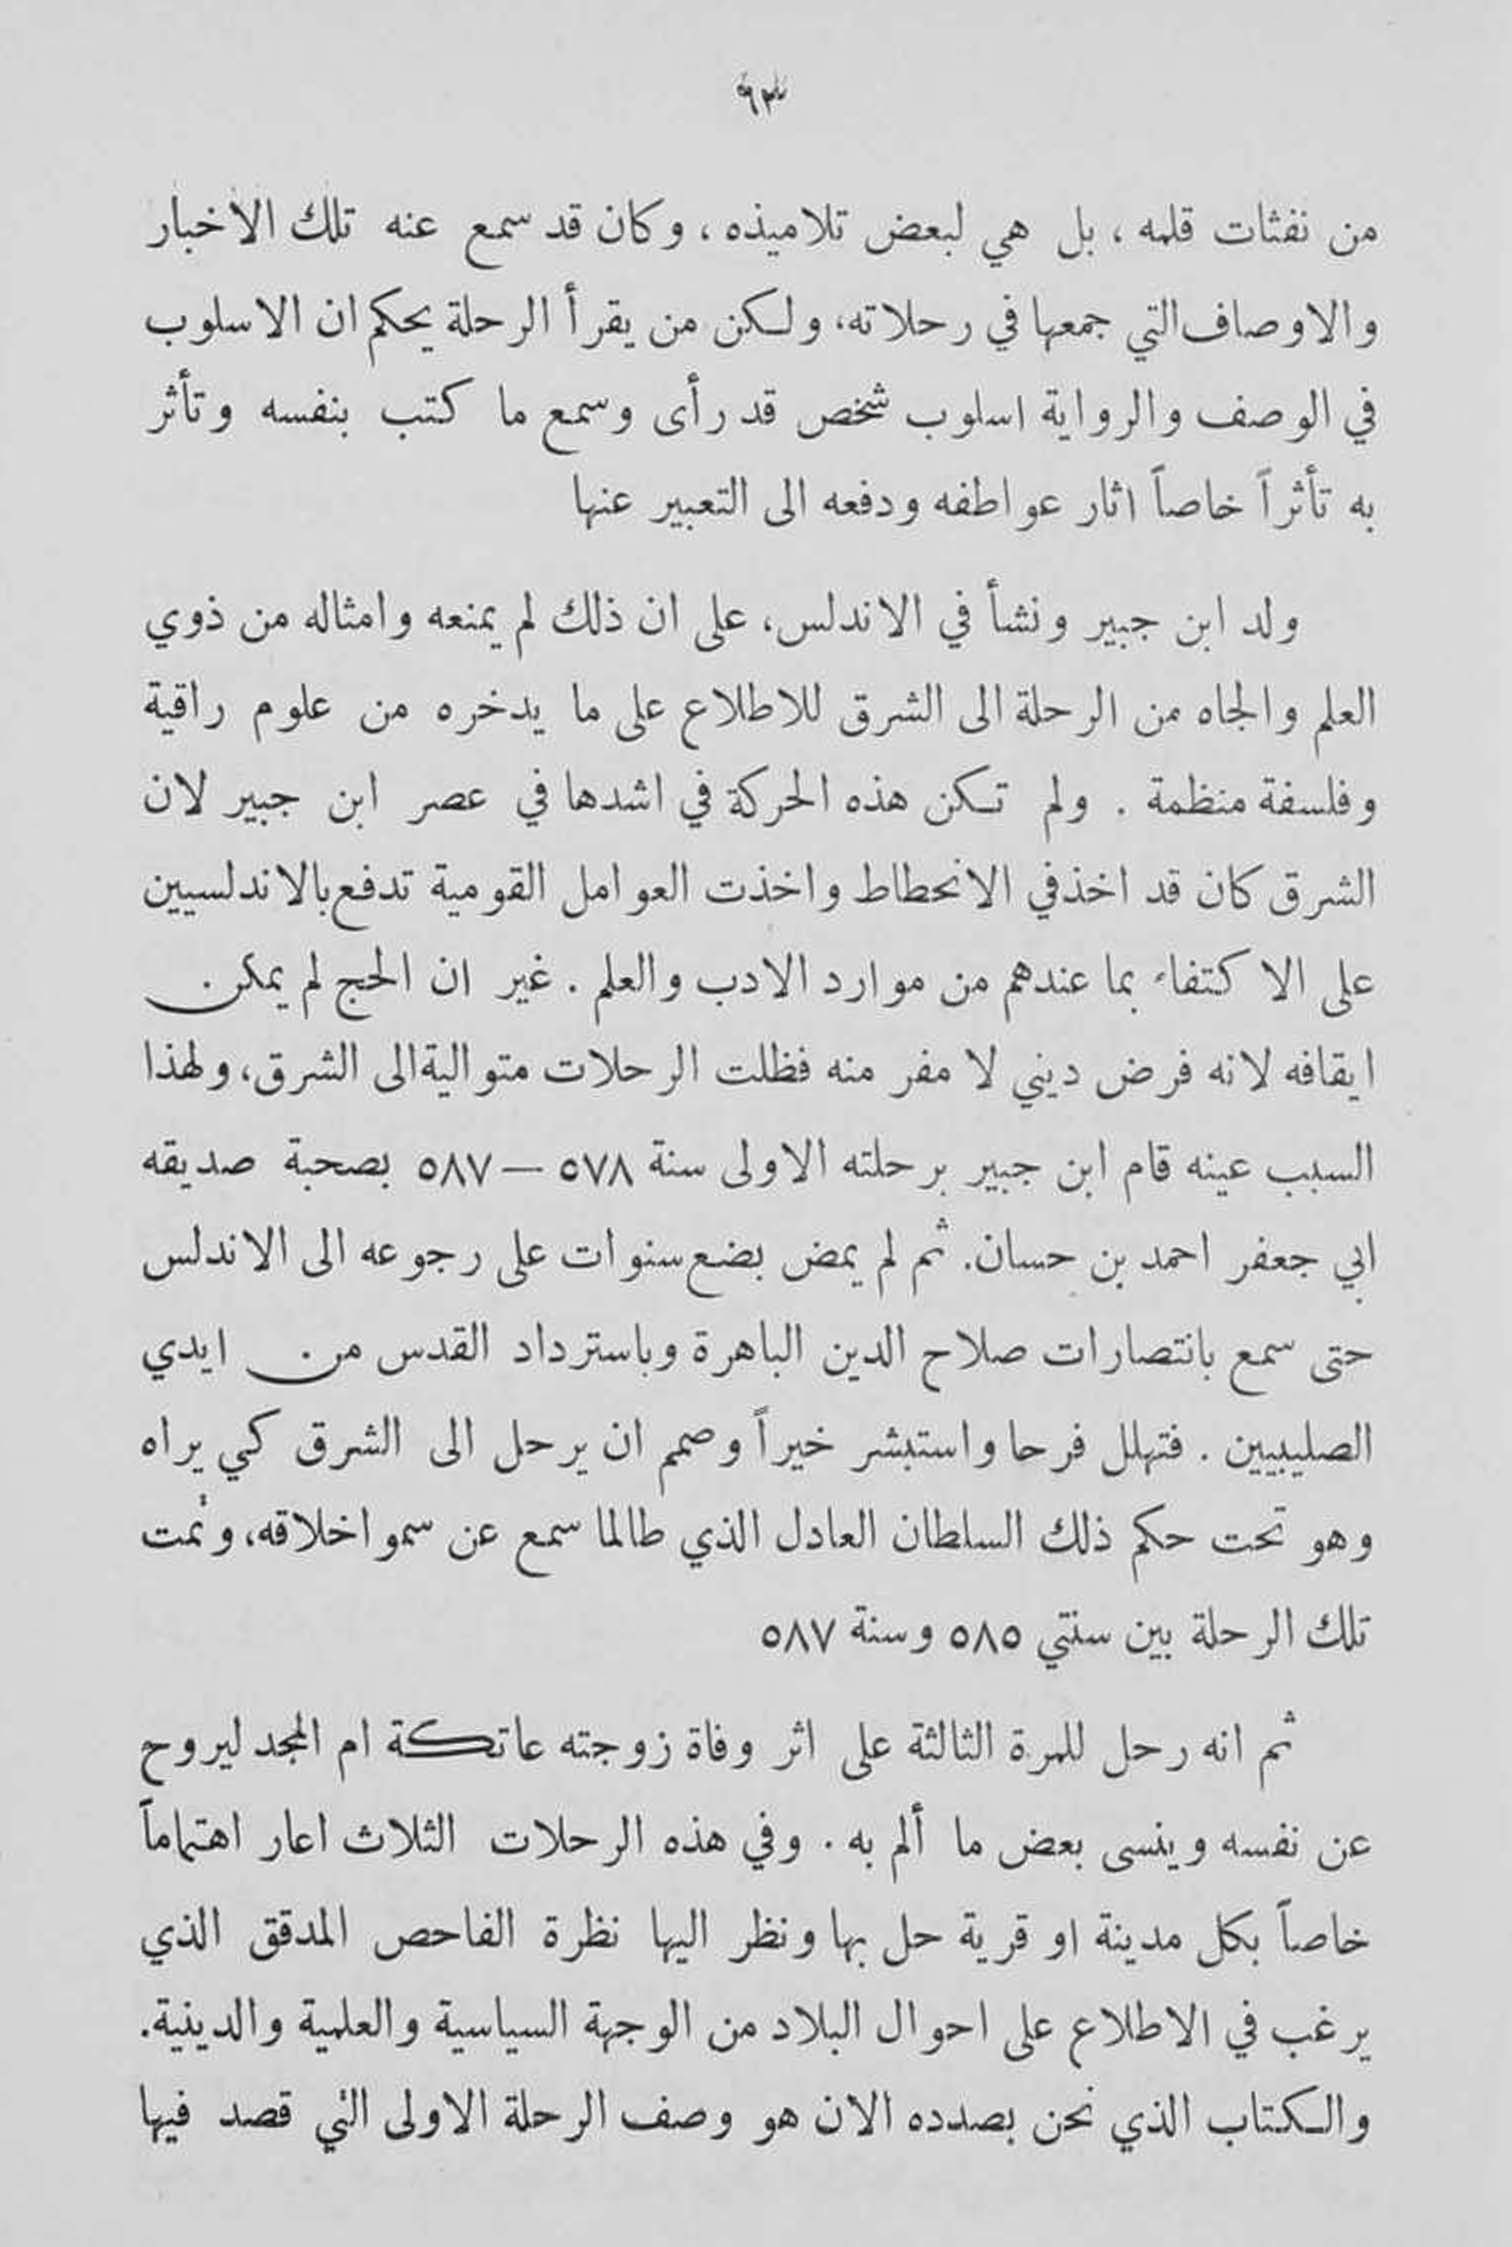 من نفثات قلمه ، بل هي لبعض تلاميذه ، وكان قد سمع عنه تلك الاخبار
والاوصاف التي جمعها في رحلاته، ولكن من يقرأ الرحلة يحكم ان الاسلوب
في الوصف والرواية اسلوب شخص قد رأى وسمع ما كتب بنفسه وتأثر
به تأثراً خاصاً اثار عواطفه ودفعه الى التعبير عنها
ولد ابن جبير ونشأ في الاندلس، على ان ذلك لم يمنعه وامثاله من ذوي
العلم والجاه من الرحلة الى الشرق للاطلاع على ما يدخره من علوم راقية
وفلسفة منظمة . ولم تكن هذه الحركة في اشدها في عصر ابن جبير لان
الشرق كان قد اخذ في الانحطاط واخذت العوامل القومية تدفع بالاندلسيين
على الاكتفاء بما عندهم من موارد الادب والعلم . غير ان الحج لم يمكن
ايقافه لانه فرض ديني لا مفر منه فظلت الرحلات متوالية الى الشرق، ولهذا
السبب عينه قام ابن جبير برحلته الاولى سنة ٥٧٨ — ٥٨٧ بصحبة صديقه
ابي جعفر احمد بن حسان. ثم لم يمض بضع سنوات على رجوعه الى الاندلس
حتى سمع بانتصارات صلاح الدين الباهرة وباسترداد القدس من ايدي
الصليبيين . فتهلل فرحا واستبشر خيراً وصمم ان يرحل الى الشرق كي يراه
وهو تحت حكم ذلك السلطان العادل الذي طالما سمع عن سمو اخلاقه، وتمت
تلك الرحلة بين سنتي ٥٨٥ وسنة ٥٨٧
ثم انه رحل للمرة الثالثة على اثر وفاة زوجته عاتكة ام المجد ليروح
عن نفسه وينسى بعض ما ألم به . وفي هذه الرحلات الثلاث اعار اهتماماً
خاصاً بكل مدينة او قرية حل بها ونظر اليها نظرة الفاحص المدقق الذي
يرغب في الاطلاع على احوال البلاد من الوجهة السياسية والعلمية والدينية.
والكتاب الذي نحن بصدده الان هو وصف الرحلة الاولى التي قصد فيها